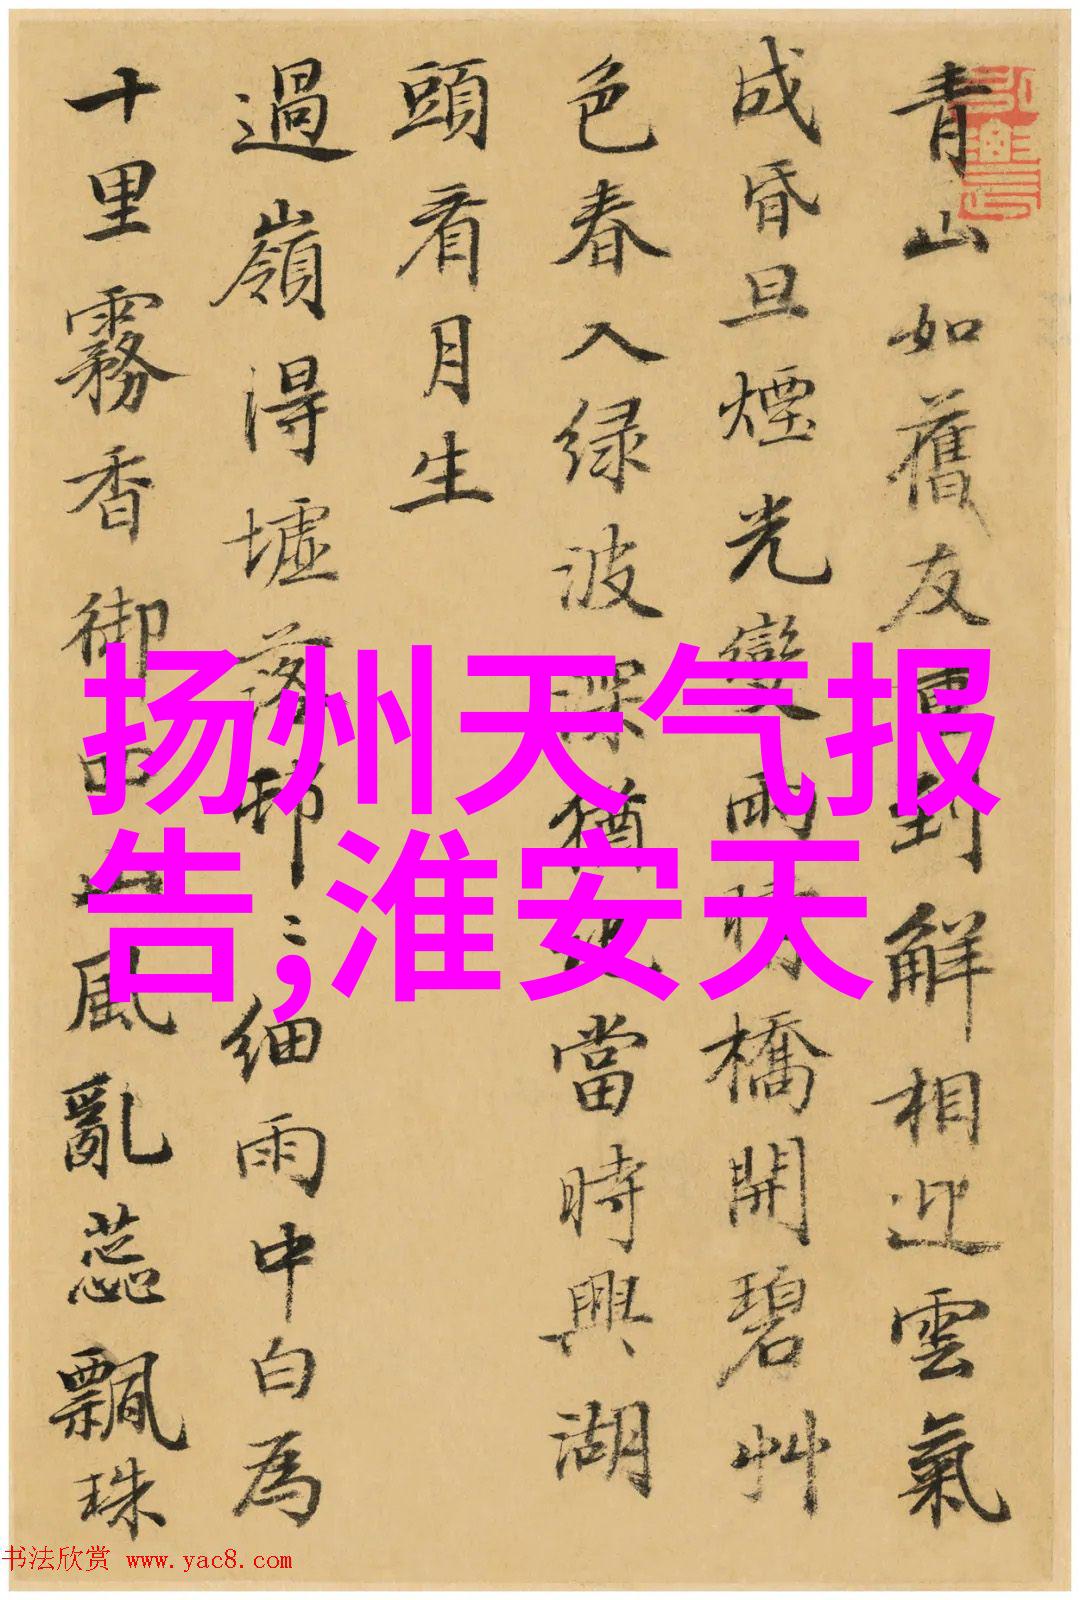 青山如舊友重到解相迎雲氣
成昏旦煙光變雨晴橋開碧艸
色春入绿波深猶當時興湖
頭看月生
過嶺得墟落邨〻細雨中白為
十里霧香御風亂蕊飄珠
扬州天气报
告;淮安天
书法欣赏 www.yac8.com